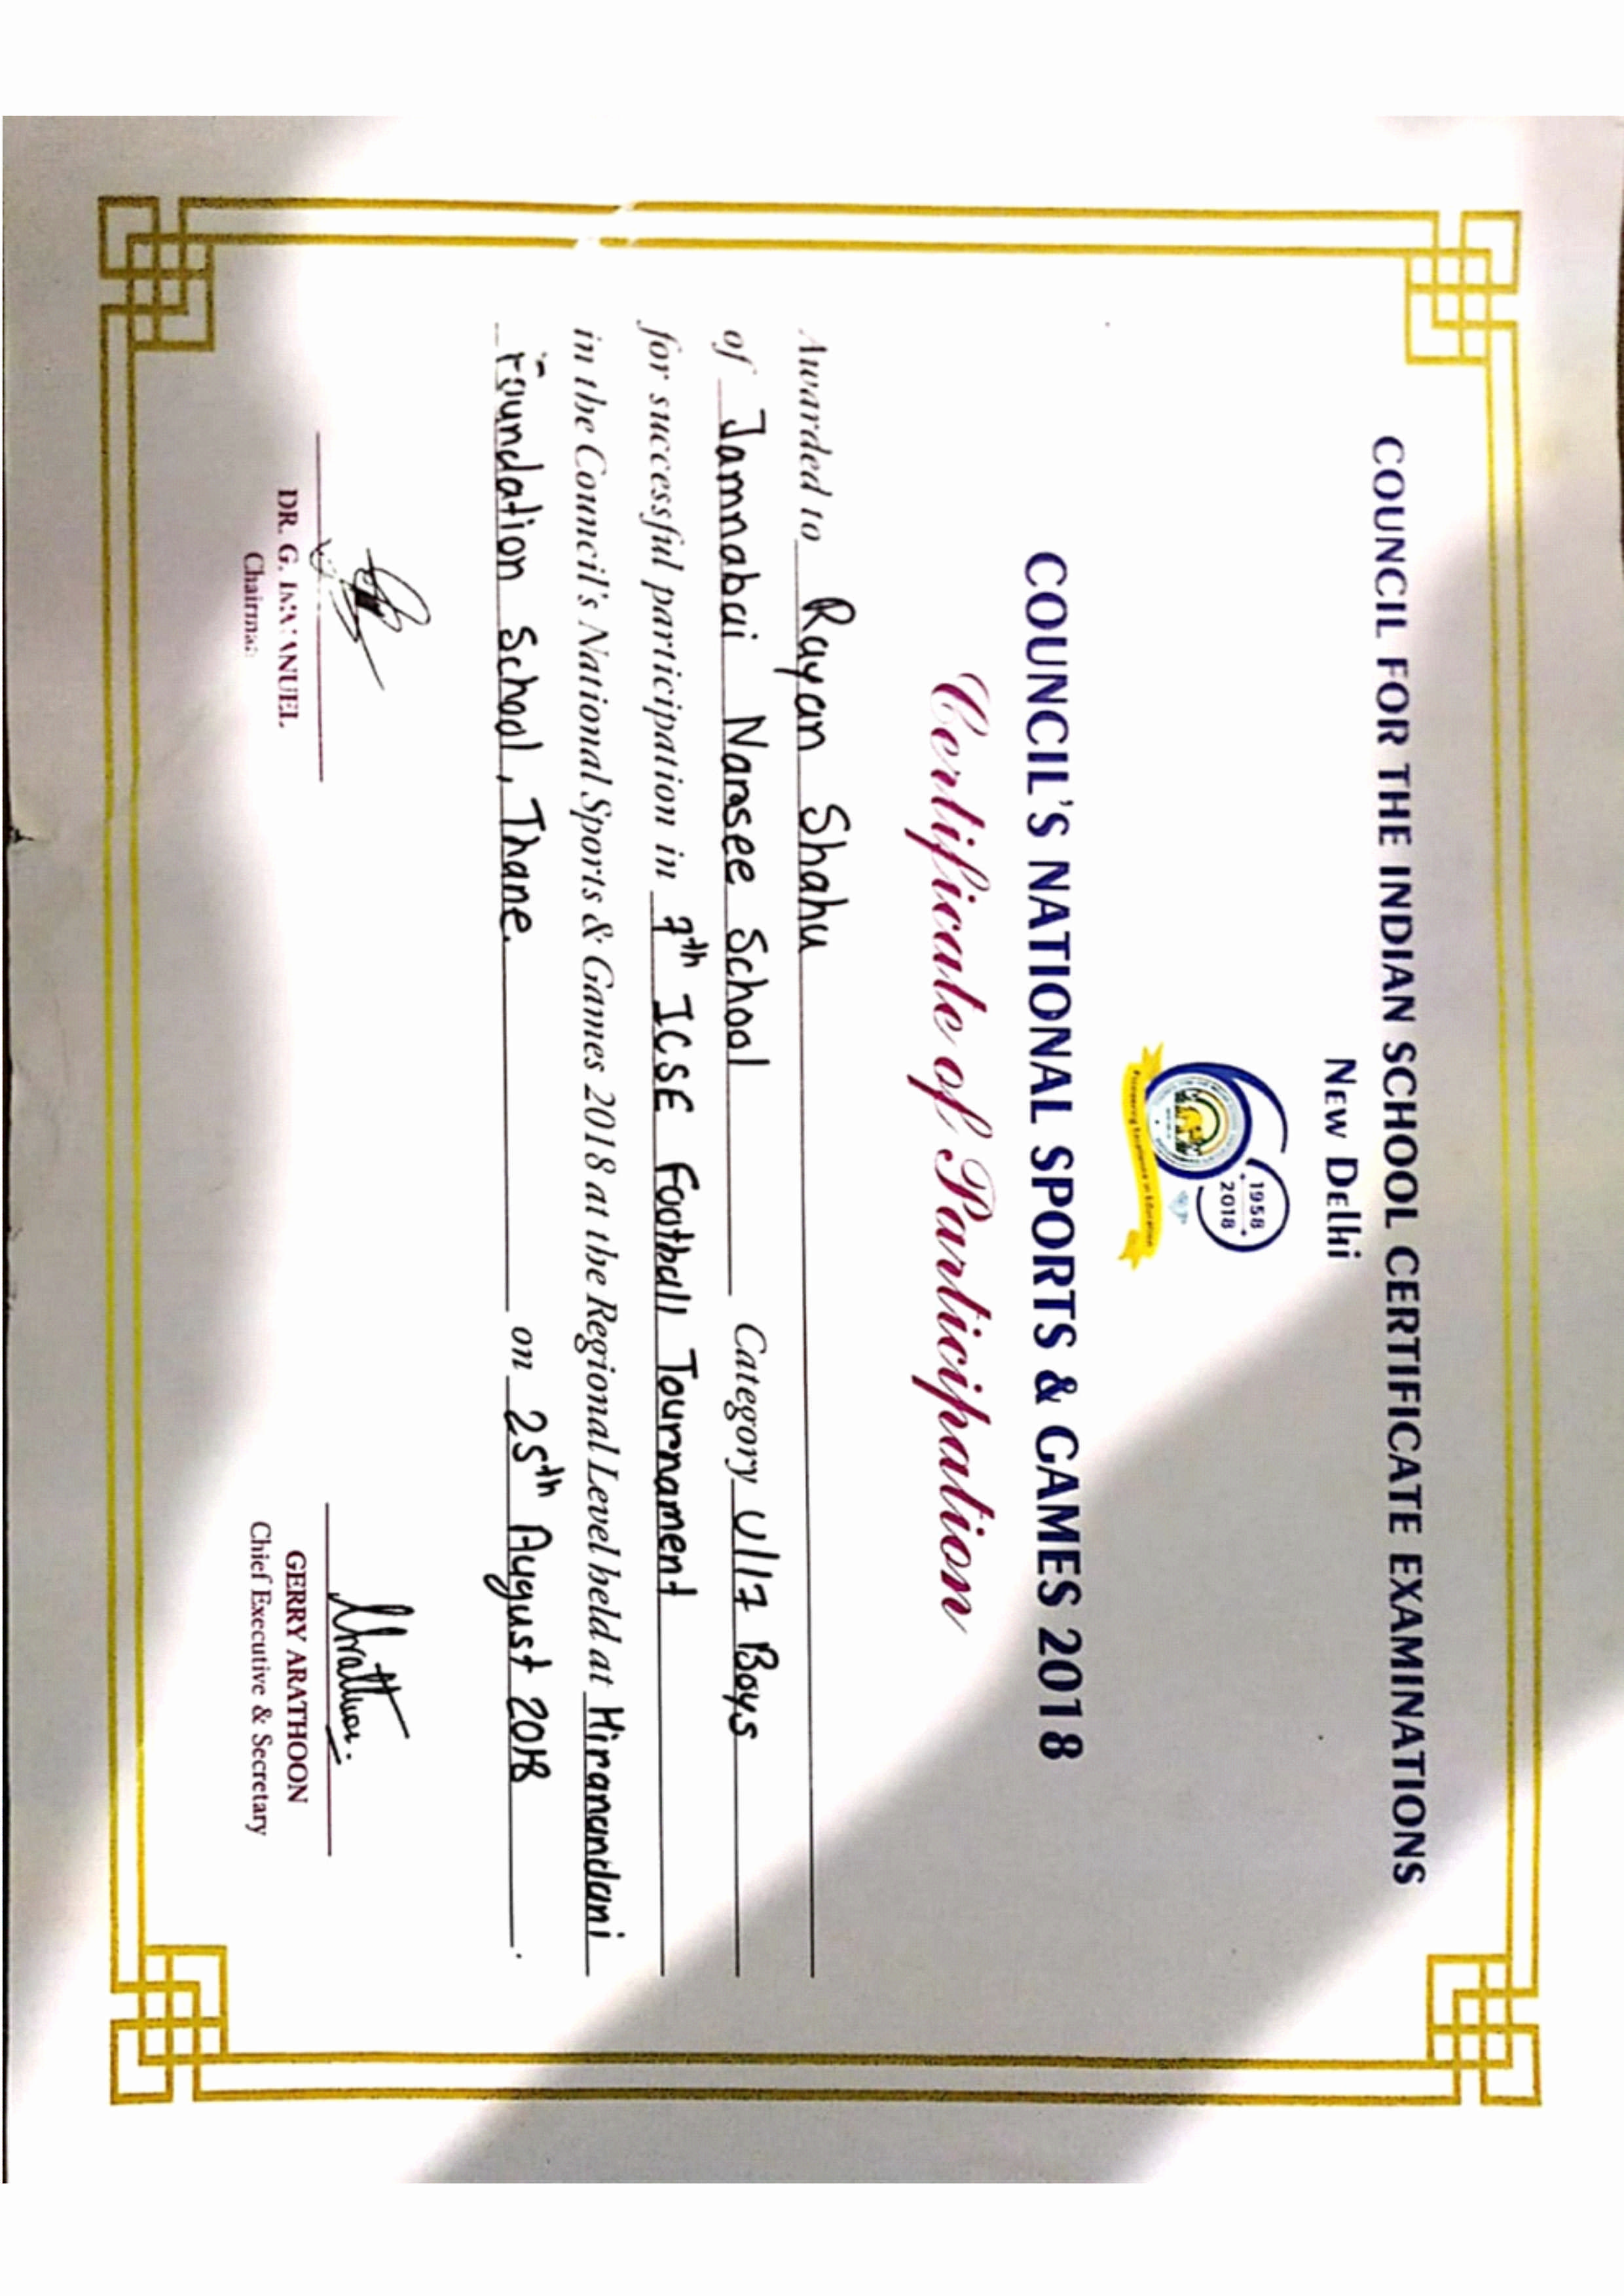 COUNCIL FOR THE INDIAN SCHOOL CERTIFICATE EXAMINATIONS
NEW DELHI
1958
2018
COUNCIL'S NATIONAL SPORTS & GAMES 2018
Certificate of Participation
Awarded to Rayan Shahu
of Jamnabai Narsee School Category U/17 Boys
for successful participation in 7th ICSE Football Tournament
in the Council's National Sports & Games 2018 at the Regional Level held at Hiranandani
Foundation School, Thane. on 25th August 2018.
DR. G. IMMANUEL
Chairman
GERRY ARATHOON
Chief Executive & Secretary